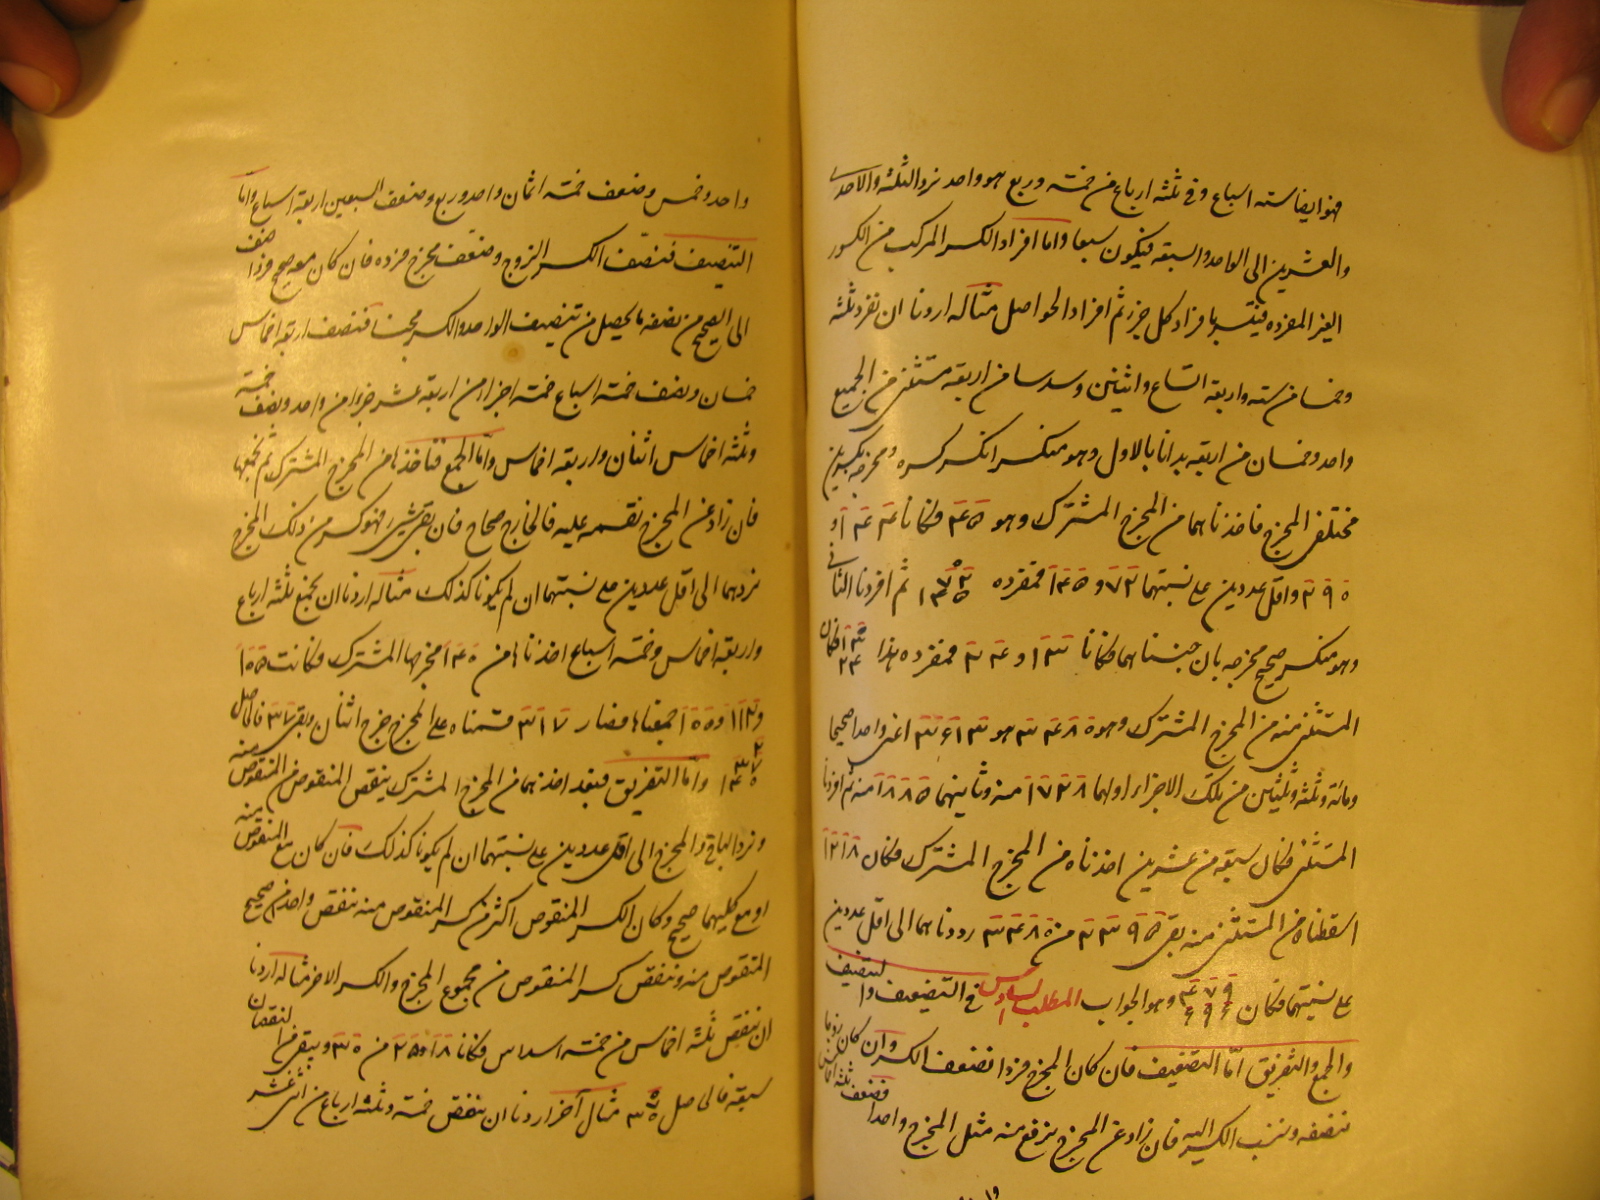 فهو ايضا ستة اسباع وفى ثلثة ارباع من خمسة وربع هو واحد نرد الثلثة والاحدى
والعشرين الى الواحد والسبعة فيكون سبعا واما افراد الكسر المركب من الكسور
الغير المفردة فيتيسر بافراد كل جزء ثم افراد الحواصل مثاله اردنا ان نفرد ثلثة
وخمسا من ستة واربعة اتساع واثنين وسدسا من اربعة مستثنى من الجميع
واحد وخمسان من اربعة بدانا بالاول وهو منكسر انكسر كسره ومخرجه بكسرين
مختلفى المخرج فاخذناهما من المخرج المشترك وهو ٤٥ فكانا ١٤٤ و
٢٩٠ واقل عددين على نسبتهما ٧٢ و ١٤٥ فمفرده ثم افردنا الثانى
وهو منكسر صحيح مخرجه بان جنسناهما فكانا ١٣ و ٢٤ فمفرده هذا ١٣ ٢٤ فكان
المستثنى منه من المخرج المشترك وهو ٣٤٨٠ هو اعنى واحدا صحيحا
ومائة وثلثة وثلثين من تلك الاجزاء اولهما ١٧٢٨ منه وثانيهما ١٨٨٥ منه ثم افردنا
المستثنى فكان سبعة من عشرين اخذناه من المخرج المشترك فكان ١٢١٨
اسقطناه من المستثنى منه بقى ٢٣٩٥ من ٣٤٨٠ رددناهما الى اقل عددين
على نسبتهما فكان ٤٧٩ ٦٩٦ وهو الجواب المطلب السادس فى التضعيف والتنصيف
والجمع والتفريق اما التضعيف فان كان المخرج فردا نضعف الكسر وان كان زوجا
ننصفه وننسب الكسر اليه فان زاد عن المخرج يرفع منه مثل المخرج واحدا فضعف ثلثة اخماس
واحد وخمس وضعف خمسة اثمان واحد وربع وضعف السبعين اربعة اسباع واما
التنصيف فننصف الكسر الزوج ونضعف مخرج فرده فان كان معه صحيح فرد اضف
الى الصحيح من نصفه ما يحصل من تنصيف الواحد والكسر مجنسا فنصف اربعة اخماس
خمسان ونصف خمسة اسباع خمسة اجزاء من اربعة عشر جزءا من واحد ونصف خمسة
وثلثة اخماس اثنان واربعة اخماس واما الجمع فناخذها من المخرج المشترك ثم نجمعها
فان زاد عن المخرج نقسمه عليه فالخارج صحاح فان بقى شىء فهو كسر من ذلك المخرج
نردهما الى اقل عددين على نسبتهما ان لم يكونا كذلك مثاله اردنا ان نجمع ثلثة ارباع
واربعة اخماس وخمسة اسباع اخذناها من ١٤٠ مخرجها المشترك فكانت ١٠٥
و ١١٢ و ١٠٠ جمعناها فصار ٣١٧ قسمناه على المخرج خرج اثنان وبقى ٣٧ فالحاصل
٢ ٣٧ ١٤٠ واما التفريق فبعد اخذهما من المخرج المشترك ينقص المنقوص من المنقوص منه
ونرد الباقى والمخرج الى اقل عددين على نسبتهما ان لم يكونا كذلك فان كان مع المنقوص منه
او مع كليهما صحيح وكان الكسر المنقوص اكثر من كسر المنقوص منه ننقص واحد من صحيح
المنقوص منه وننقص كسر المنقوص من مجموع المخرج والكسر الاخر مثاله اردنا
ان ننقص ثلثة اخماس من خمسة اسداس فكانا ١٨ و ٢٥ من ٣٠ ويبقى من النقصان
سبعة فالحاصل ٧ ٣٠ مثال آخر اردنا ان ننقص خمسة وثلثة ارباع من اثنى عشر